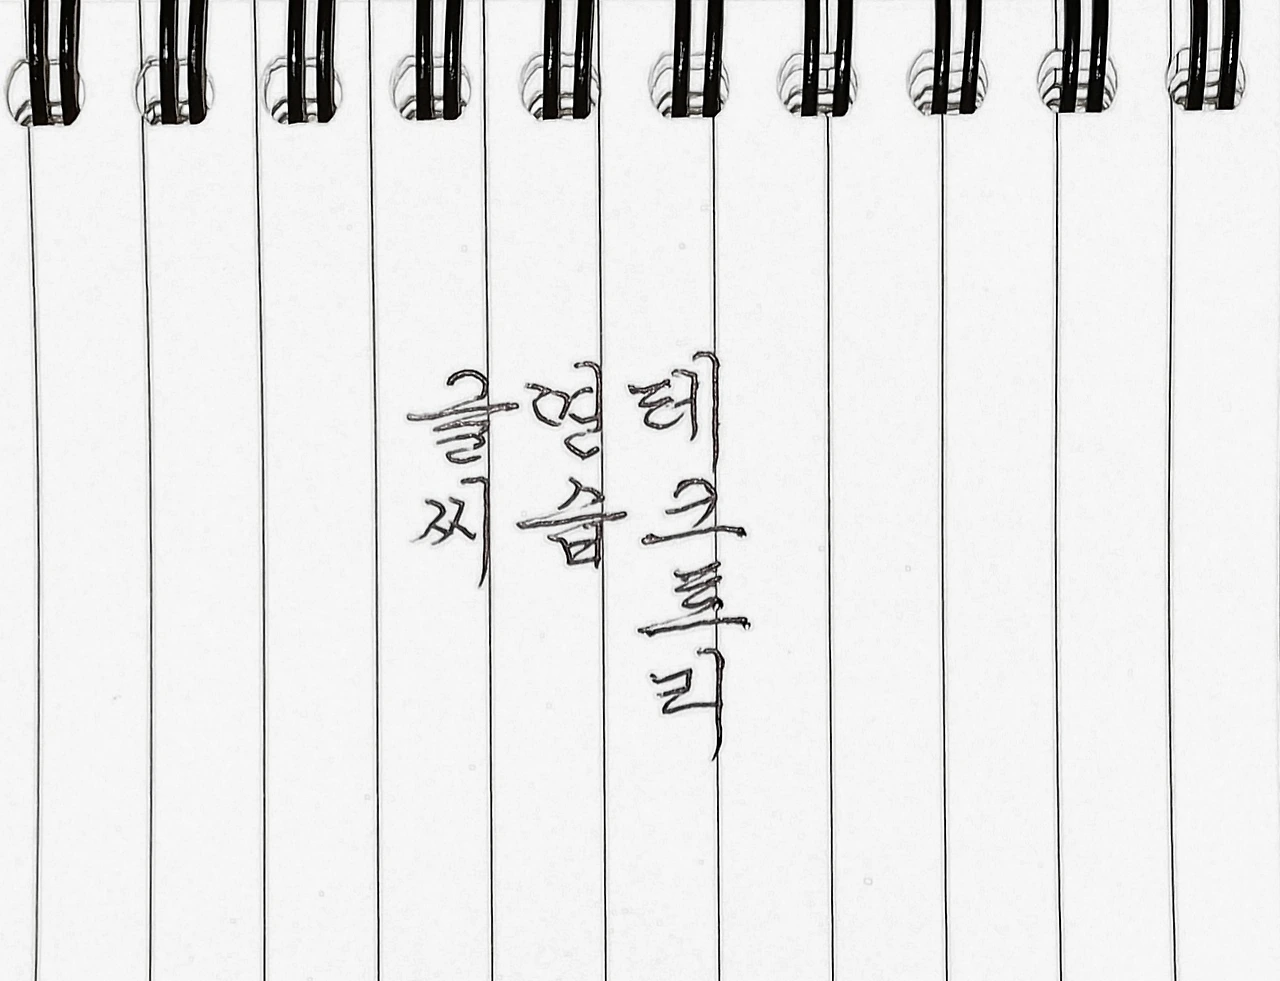 글씨
연습
테크트리